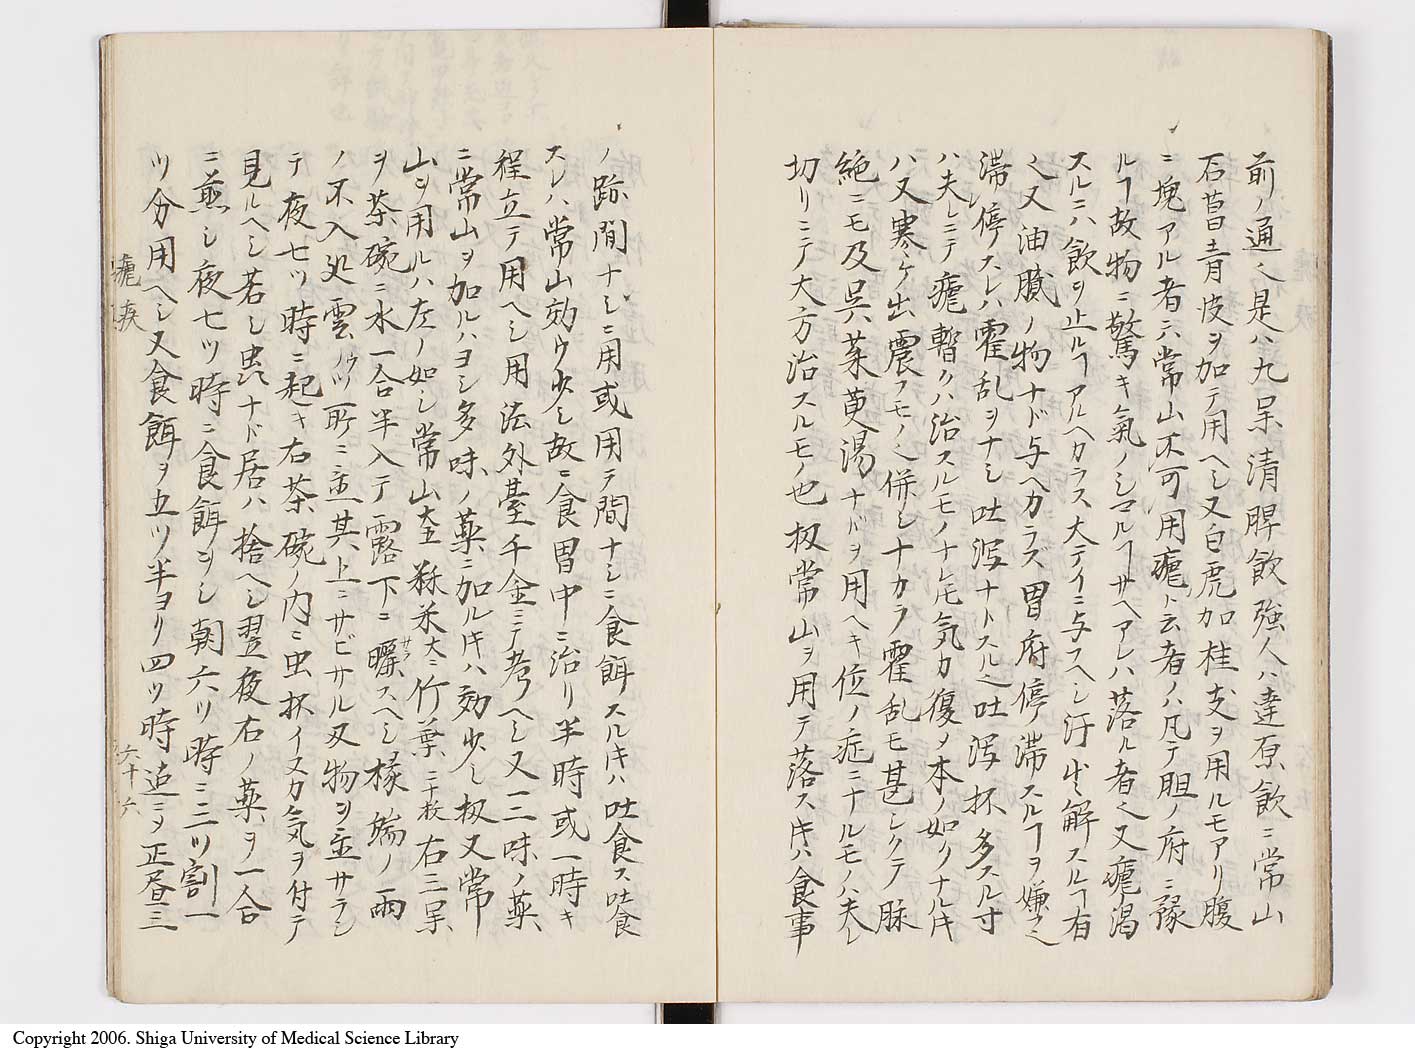 前ノ通之是ハ九呆清脾飲強人ハ達原飲ニ常山
石菖青皮ヲ加テ用ヘシ又白虎加桂支ヲ用ルモアリ腹
ニ塊アル者ニハ常山不可用瘧ト云者ノハ凡テ胆ノ府ニ豫
ルヿ故物ニ驚キ氣ノシマルヿサヘアレハ落ル者之又瘧渇
スルニハ飲ヲ止ルヿアルヘカラス大テイニ与フヘシ汗出解スルヿ有
之又油膩ノ物ナド与ヘカラズ胃府停滞スルヿヲ嫌之
滞停スレハ霍乱ヲナシ吐瀉ナトスル之吐瀉抔多スル寸
ハ夫レニテ瘧暫クハ治スルモノナレ𪜈気力復メ本ノ如クナルキ
ハ又寒ケ出震フモノ之併シナカラ霍乱モ甚シクテ脉
絶ニモ及呉茱萸湯ナドヲ用ヘキ位ノ症ニナルモノハ夫レ
切リニテ大方治スルモノ也扨常山ヲ用テ落スキハ食事
ノ跡間ナシニ用或用テ間ナシニ食餌スルキハ吐食ス吐食
スレハ常山効ウ少シ故ニ食胃中ニ治リ半時或一時キ
程立テ用ヘシ用法外臺千金ニテ考ヘシ又一二味ノ薬
ニ常山ヲ加ルハヨシ多味ノ薬ニ加ルキハ効少シ扨又常
山ヲ用ルハ左ノ如シ常山大五秫米大ニ竹葉二十枚右三呆
ヲ茶碗ニ水一合半入テ露下ニ曬サラスヘシ椽端ノ雨
ノ不入処雲ノウツル所ニ並其上ニサビサル刄物ヲ並サラシ
テ夜七ツ時ニ起キ右茶碗ノ内ニ虫抔イヌカ気ヲ付テ
見ルヘシ若シ虫ナド居ハ捨ヘシ翌夜右ノ薬ヲ一合
ニ煎シ夜七ツ時ニ食餌ヲシ朝六ツ時ニ三ツ割一
ツ分用ヘシ又食餌ヲ立ツ半ヨリ四ツ時迠ニメ正昼三
瘧疾
六十六
Copyright 2006. Shiga University of Medical Science Library